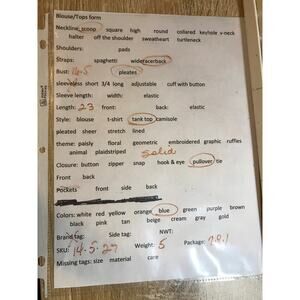 Blouse/Tops form
Neckline: scoop square high round collared keyhole v-neck
halter off the shoulder sweatheart turtleneck
Shoulders: pads
Straps: spaghetti wide racerback
Bust: 16.5 pleates
sleeveless short 3/4 long adjustable cuff with button
Sleeve length: width: elastic
Length: 23 front: back: elastic
Style: blouse t-shirt tank top camisole
pleated sheer stretch lined
theme: paisly floral geometric embroidered graphic ruffles
animal plaid striped solid
Closure: button zipper snap hook & eye pullover tie
Front back
Pockets front side back
Colors: white red yellow orange blue green purple brown
black pink tan beige cream gray gold
Brand tag: Side tag: NWT:
SKU: 14-5-29 Weight: 5 Package: 7.8.1
Missing tags: size material care